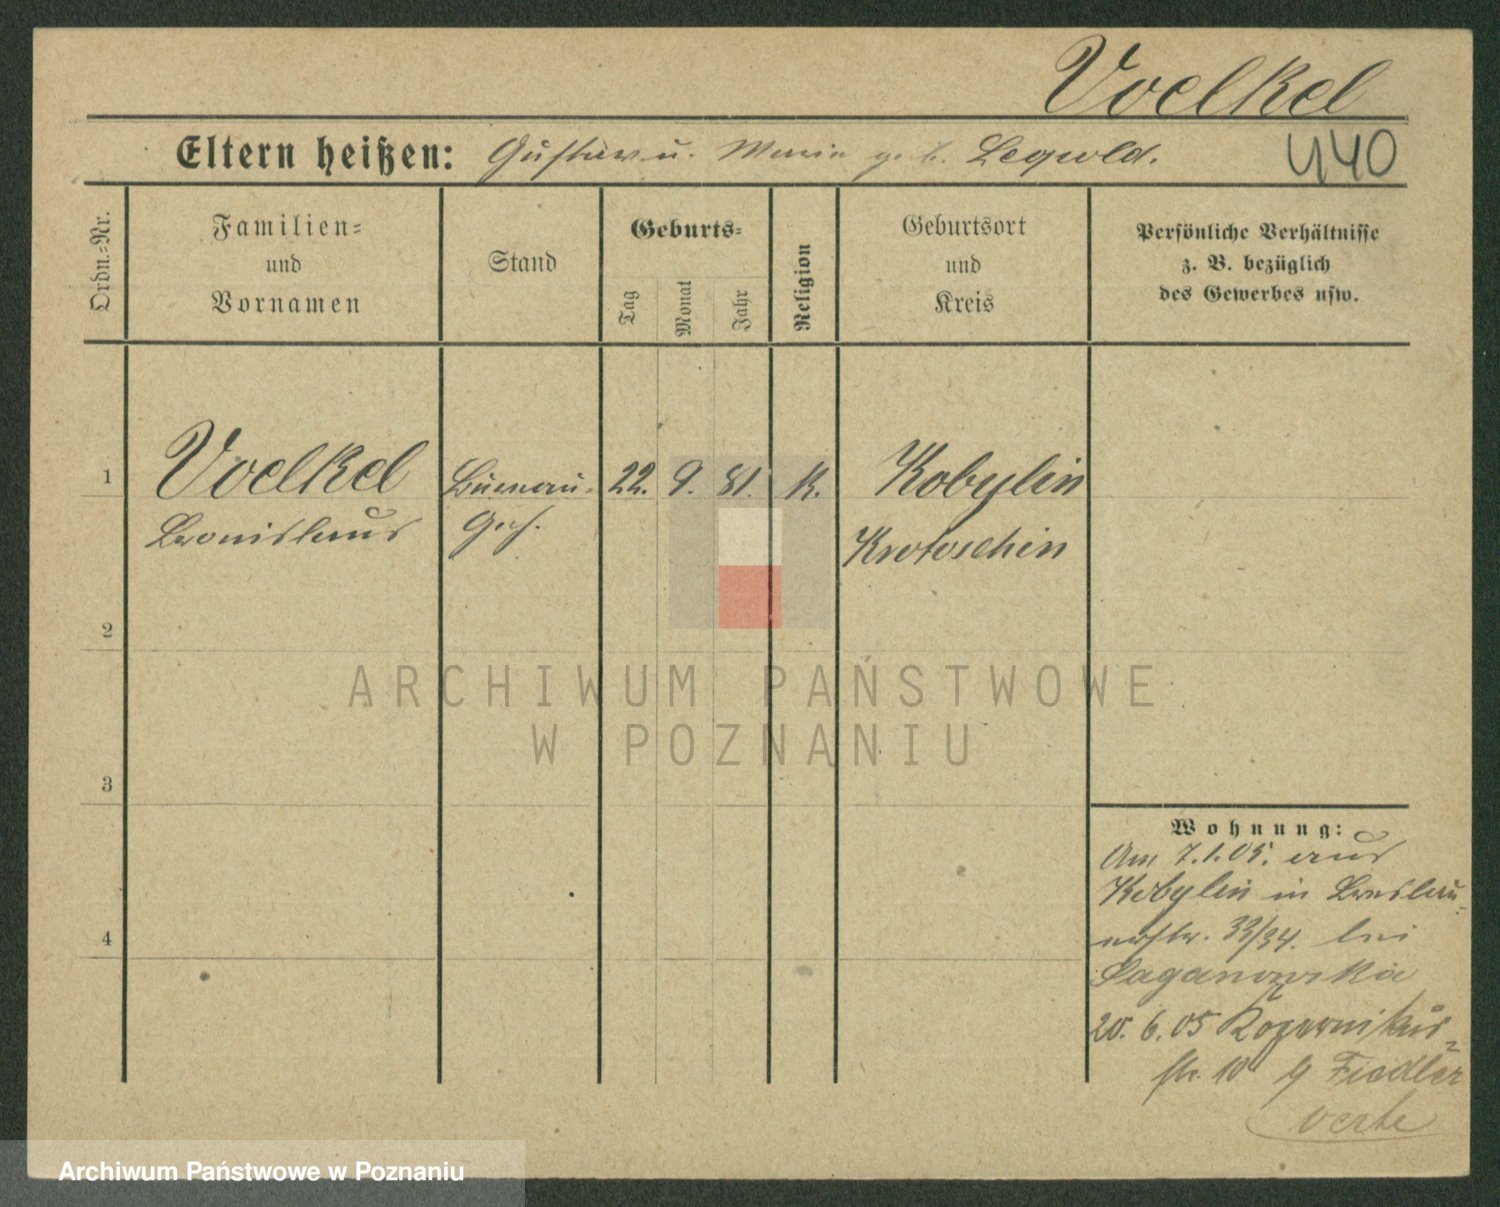 Voelkel
Eltern heißen: Gustav u. Maria geb. Legwold.
440
Ordn.-Nr.
Familien-
und
Vornamen
Stand
Geburts-
Tag
Monat
Jahr
Religion
Geburtsort
und
Kreis
Persönliche Verhältnisse
z. B. bezüglich
des Gewerbes usw.
1 Voelkel Bureau- 22. 9. 81. K. Kobylin
Bronislaus Geh. Krotoschin
2
3
4
Wohnung:
Am 7.1.05. aus
Kobylin in Breslau-
erstr. 33/34. bei
Saganowska
20. 6. 05 Kopernikus-
str. 10 Fiedler
verte
ARCHIWUM PAŃSTWOWE
W POZNANIU
Archiwum Państwowe w Poznaniu